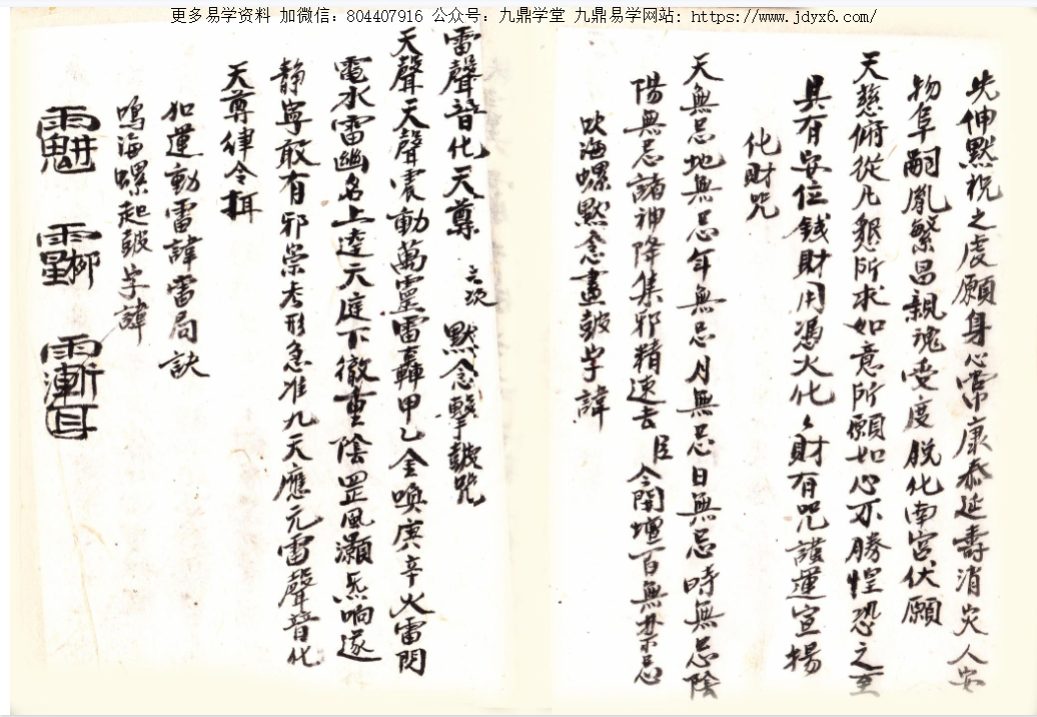 更多易学资料 加微信：804407916 公众号：九鼎学堂 九鼎易学网站：https://www.jdyx6.com/
先伸默祝之虔願身心常康泰延壽消灾人安
物阜嗣胤繁昌親魂受度脱化南宮伏願
天慈俯從凡懇所求如意所願如心不勝惶恐之至
具有安位錢財用馮火化〻財有咒護運宣揚
化財咒
天無忌地無忌年無忌月無忌日無忌時無忌陰
陽無忌諸神降集邪精速去 臣 今開壇百無禁忌
吹海螺默念畫皷字諱
雷聲普化天尊 三次 默念擊皷咒
天聲天聲震動萬靈雷轟甲乙金喚庚辛火雷閃
電水雷幽名上達天庭下徹重陰罡風灝炁响遂
静寧敢有邪祟考形急准九天應元雷聲普化
天尊律令揖
如運動雷諱雷局訣
鳴海螺起皷字諱